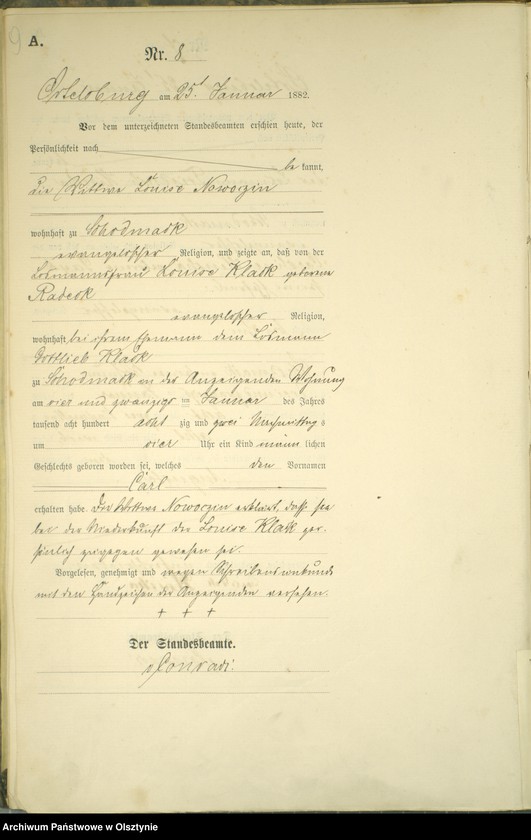 9
A.
Nr. 8
Ortelsburg am 25t Januar 1882.
Vor dem unterzeichneten Standesbeamten erschien heute, der
Persönlichkeit nach
be kannt,
die Wittwe Louise Noworzin
wohnhaft zu Schodmack
evangelischer Religion, und zeigte an, daß von der
Losmannsfrau Louise Klask geborene
Radeck
evangelischer Religion,
wohnhaft bei ihrem Ehemanne dem Losmann
Gottlieb Klask
zu Schodmack in der Anzeigenden Wohnung
am vier und zwanzigs ten Januar des Jahres
tausend acht hundert acht zig und zwei Nachmittag s
um vier Uhr ein Kind männ lichen
Geschlechts geboren worden sei, welches den Vornamen
Carl
erhalten habe. Die Wittwe Noworzin erklärt, daß sie
bei der Niederkunft der Louise Klask per-
sönlich zugegen gewesen sei.
Vorgelesen, genehmigt und wegen Schreibensunkunde
mit den Handzeichen der Anzeigenden versehen.
+ + +
Der Standesbeamte.
Conradi.
Archiwum Państwowe w Olsztynie